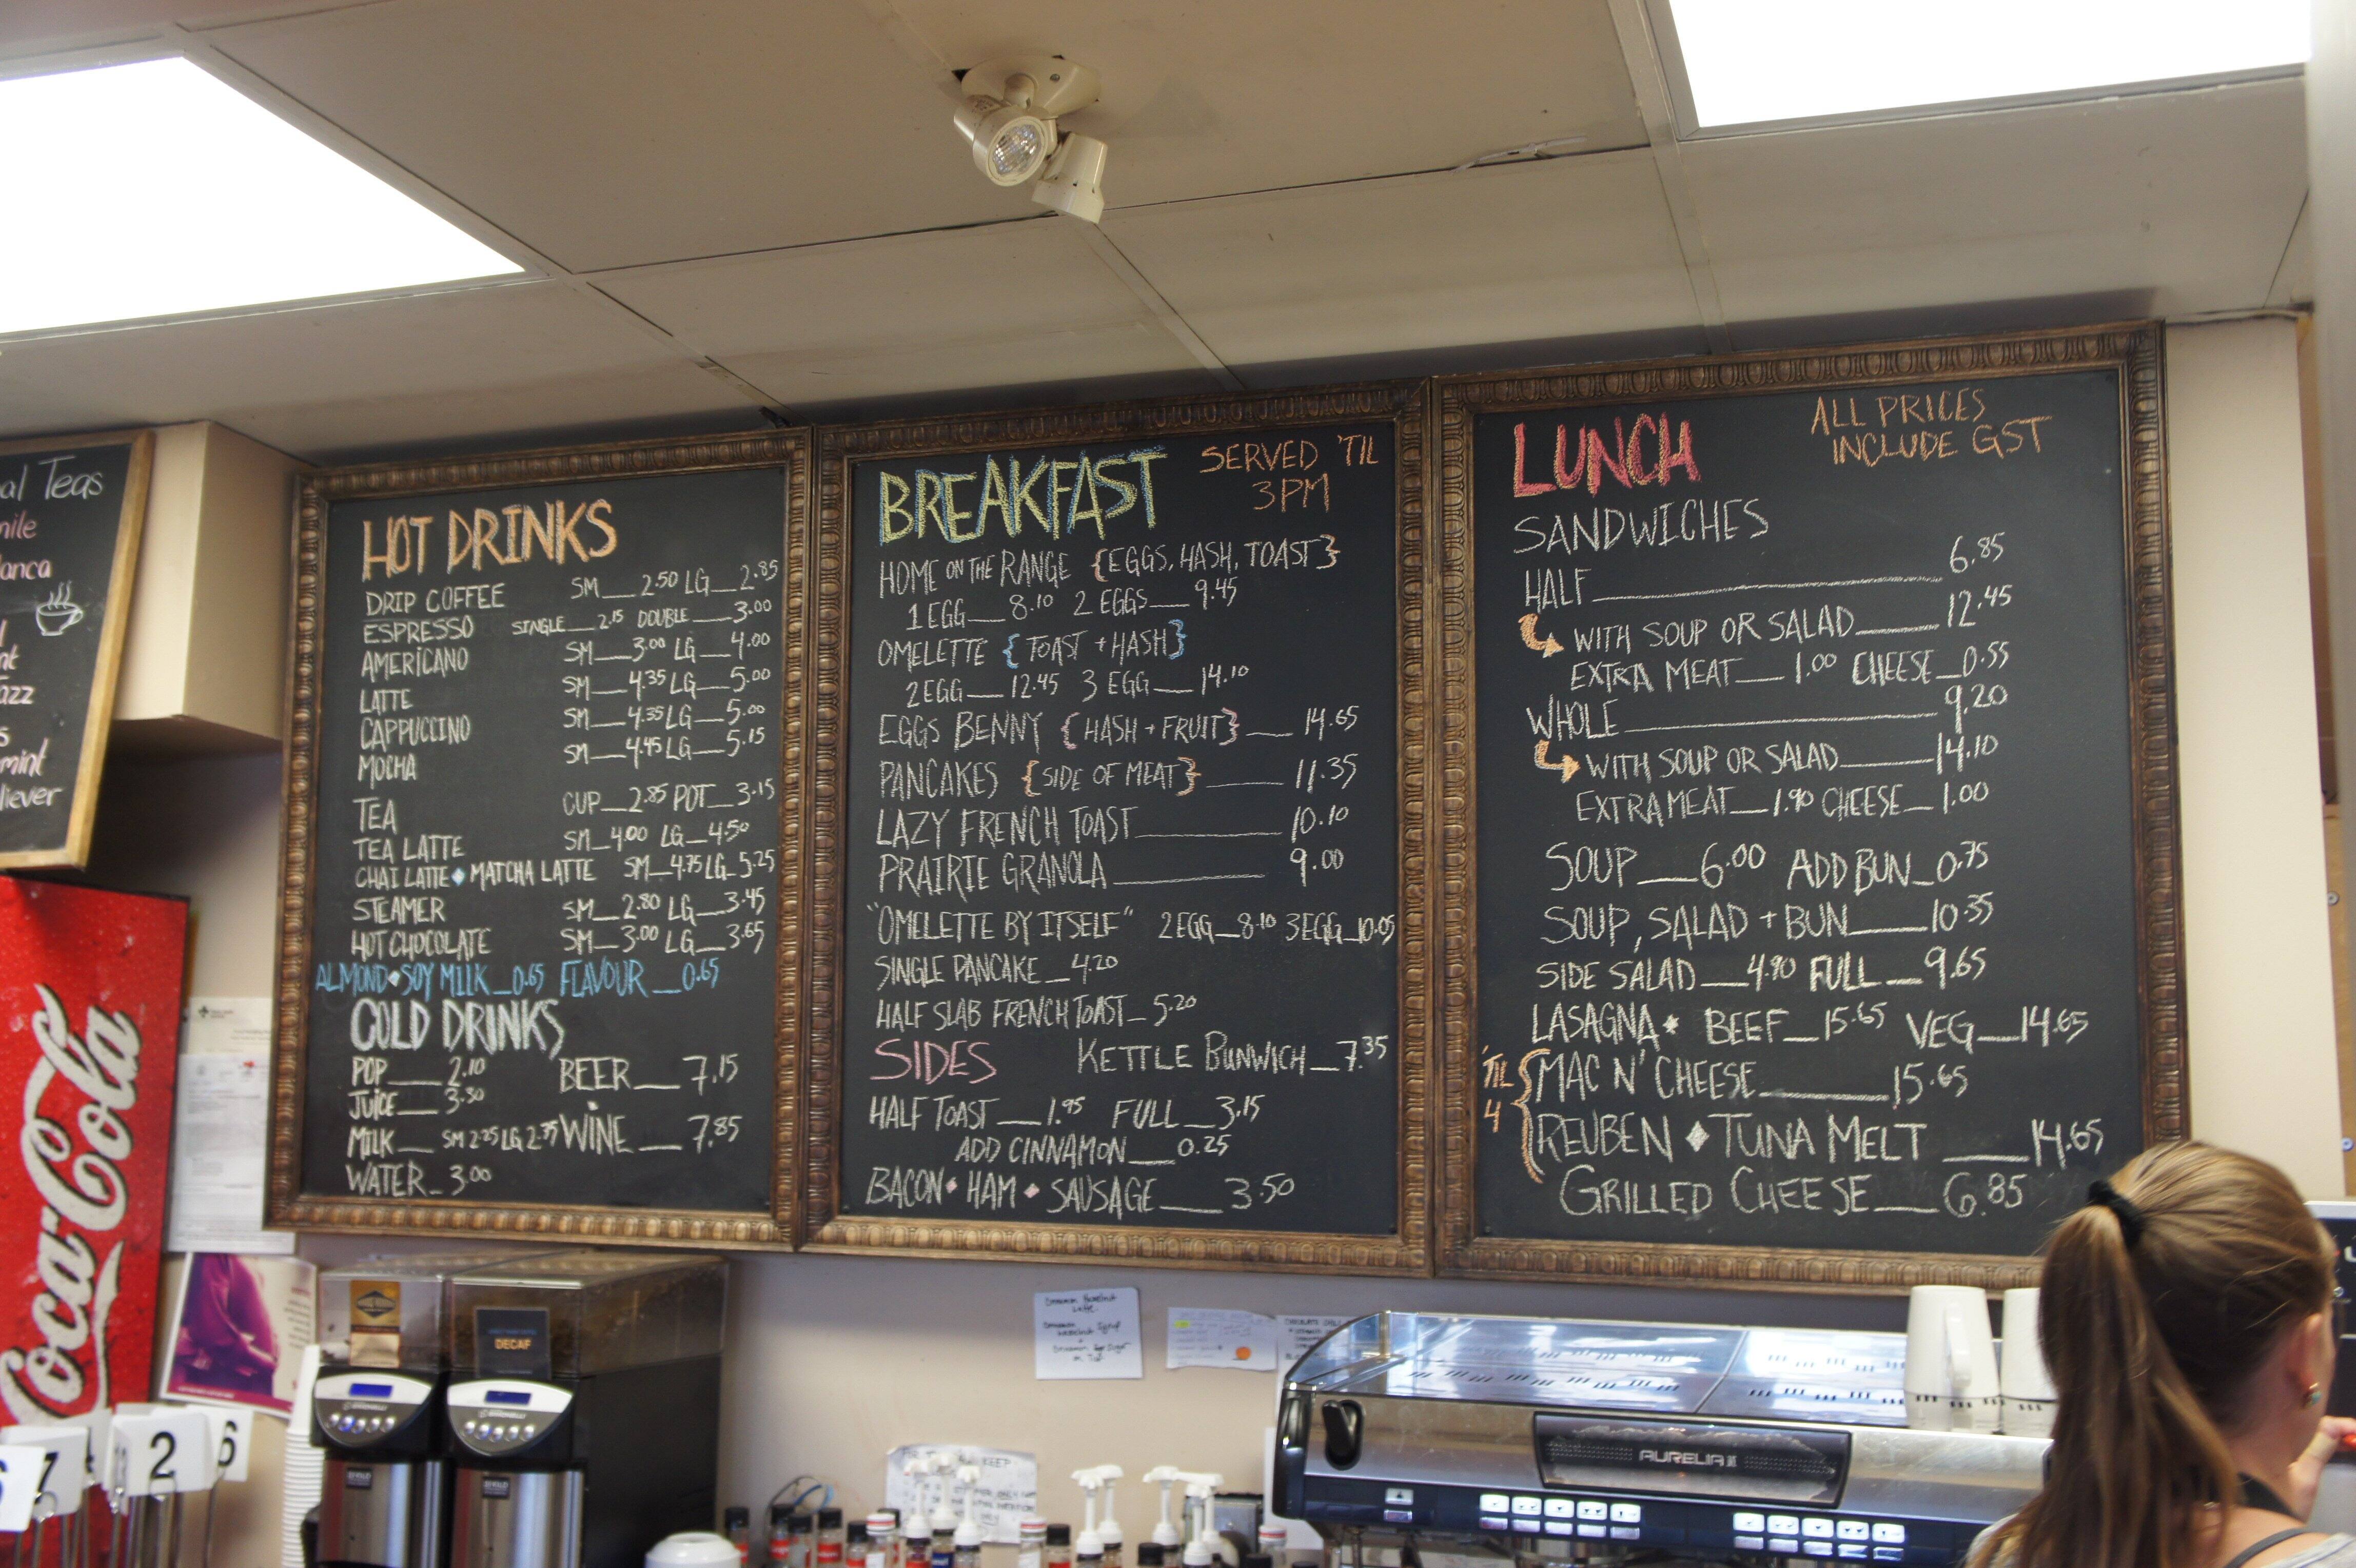 al Teas
nile
lanca
nt
azz
s
mint
liever
HOT DRINKS
DRIP COFFEE SM__2.50 LG__2.85
ESPRESSO SINGLE__2.15 DOUBLE__3.00
AMERICANO SM__3.00 LG__4.00
LATTE SM__4.35 LG__5.00
CAPPUCCINO SM__4.35 LG__5.00
MOCHA SM__4.45 LG__5.15
TEA CUP__2.85 POT__3.15
TEA LATTE SM_4.00 LG_4.50
CHAI LATTE • MATCHA LATTE SM__4.75 LG_5.25
STEAMER SM__2.80 LG__3.45
HOT CHOCOLATE SM__3.00 LG__3.65
ALMOND • SOY MILK_0.65 FLAVOUR__0.65
COLD DRINKS
POP___2.10 BEER__7.15
JUICE__
MILK__ SM 2.25 LG WINE__7.85
WATER_3.00
BREAKFAST SERVED 'TIL
3PM
HOME ON THE RANGE {EGGS, HASH, TOAST}
1 EGG__8.10 2 EGGS__9.45
OMELETTE {TOAST + HASH}
2 EGG__12.45 3 EGG__14.10
EGGS BENNY {HASH + FRUIT}__14.65
PANCAKES {SIDE OF MEAT}____11.35
LAZY FRENCH TOAST______10.10
PRAIRIE GRANOLA______9.00
"OMELETTE BY ITSELF" 2EGG__8.10 3EGG_10.05
SINGLE PANCAKE_4.20
HALF SLAB FRENCH TOAST_5.20
SIDES KETTLE BUNWICH_7.35
HALF TOAST__1.95 FULL_3.15
ADD CINNAMON__0.25
BACON • HAM • SAUSAGE___3.50
LUNCH ALL PRICES
INCLUDE GST
SANDWICHES
HALF______6.85
WITH SOUP OR SALAD____12.45
EXTRA MEAT__1.00 CHEESE_0.55
WHOLE______9.20
WITH SOUP OR SALAD____14.10
EXTRA MEAT_1.90 CHEESE_1.00
SOUP__6.00 ADD BUN_0.75
SOUP, SALAD + BUN___10.35
SIDE SALAD__4.90 FULL__9.65
LASAGNA • BEEF_15.65 VEG__14.65
'TIL 4 { MAC N' CHEESE____15.65
REUBEN ♦ TUNA MELT ___14.65
GRILLED CHEESE__6.85
Coca-Cola
DECAF
Cinnamon Hazelnut
Latte
AURELIA II
KEEP
7
2
6